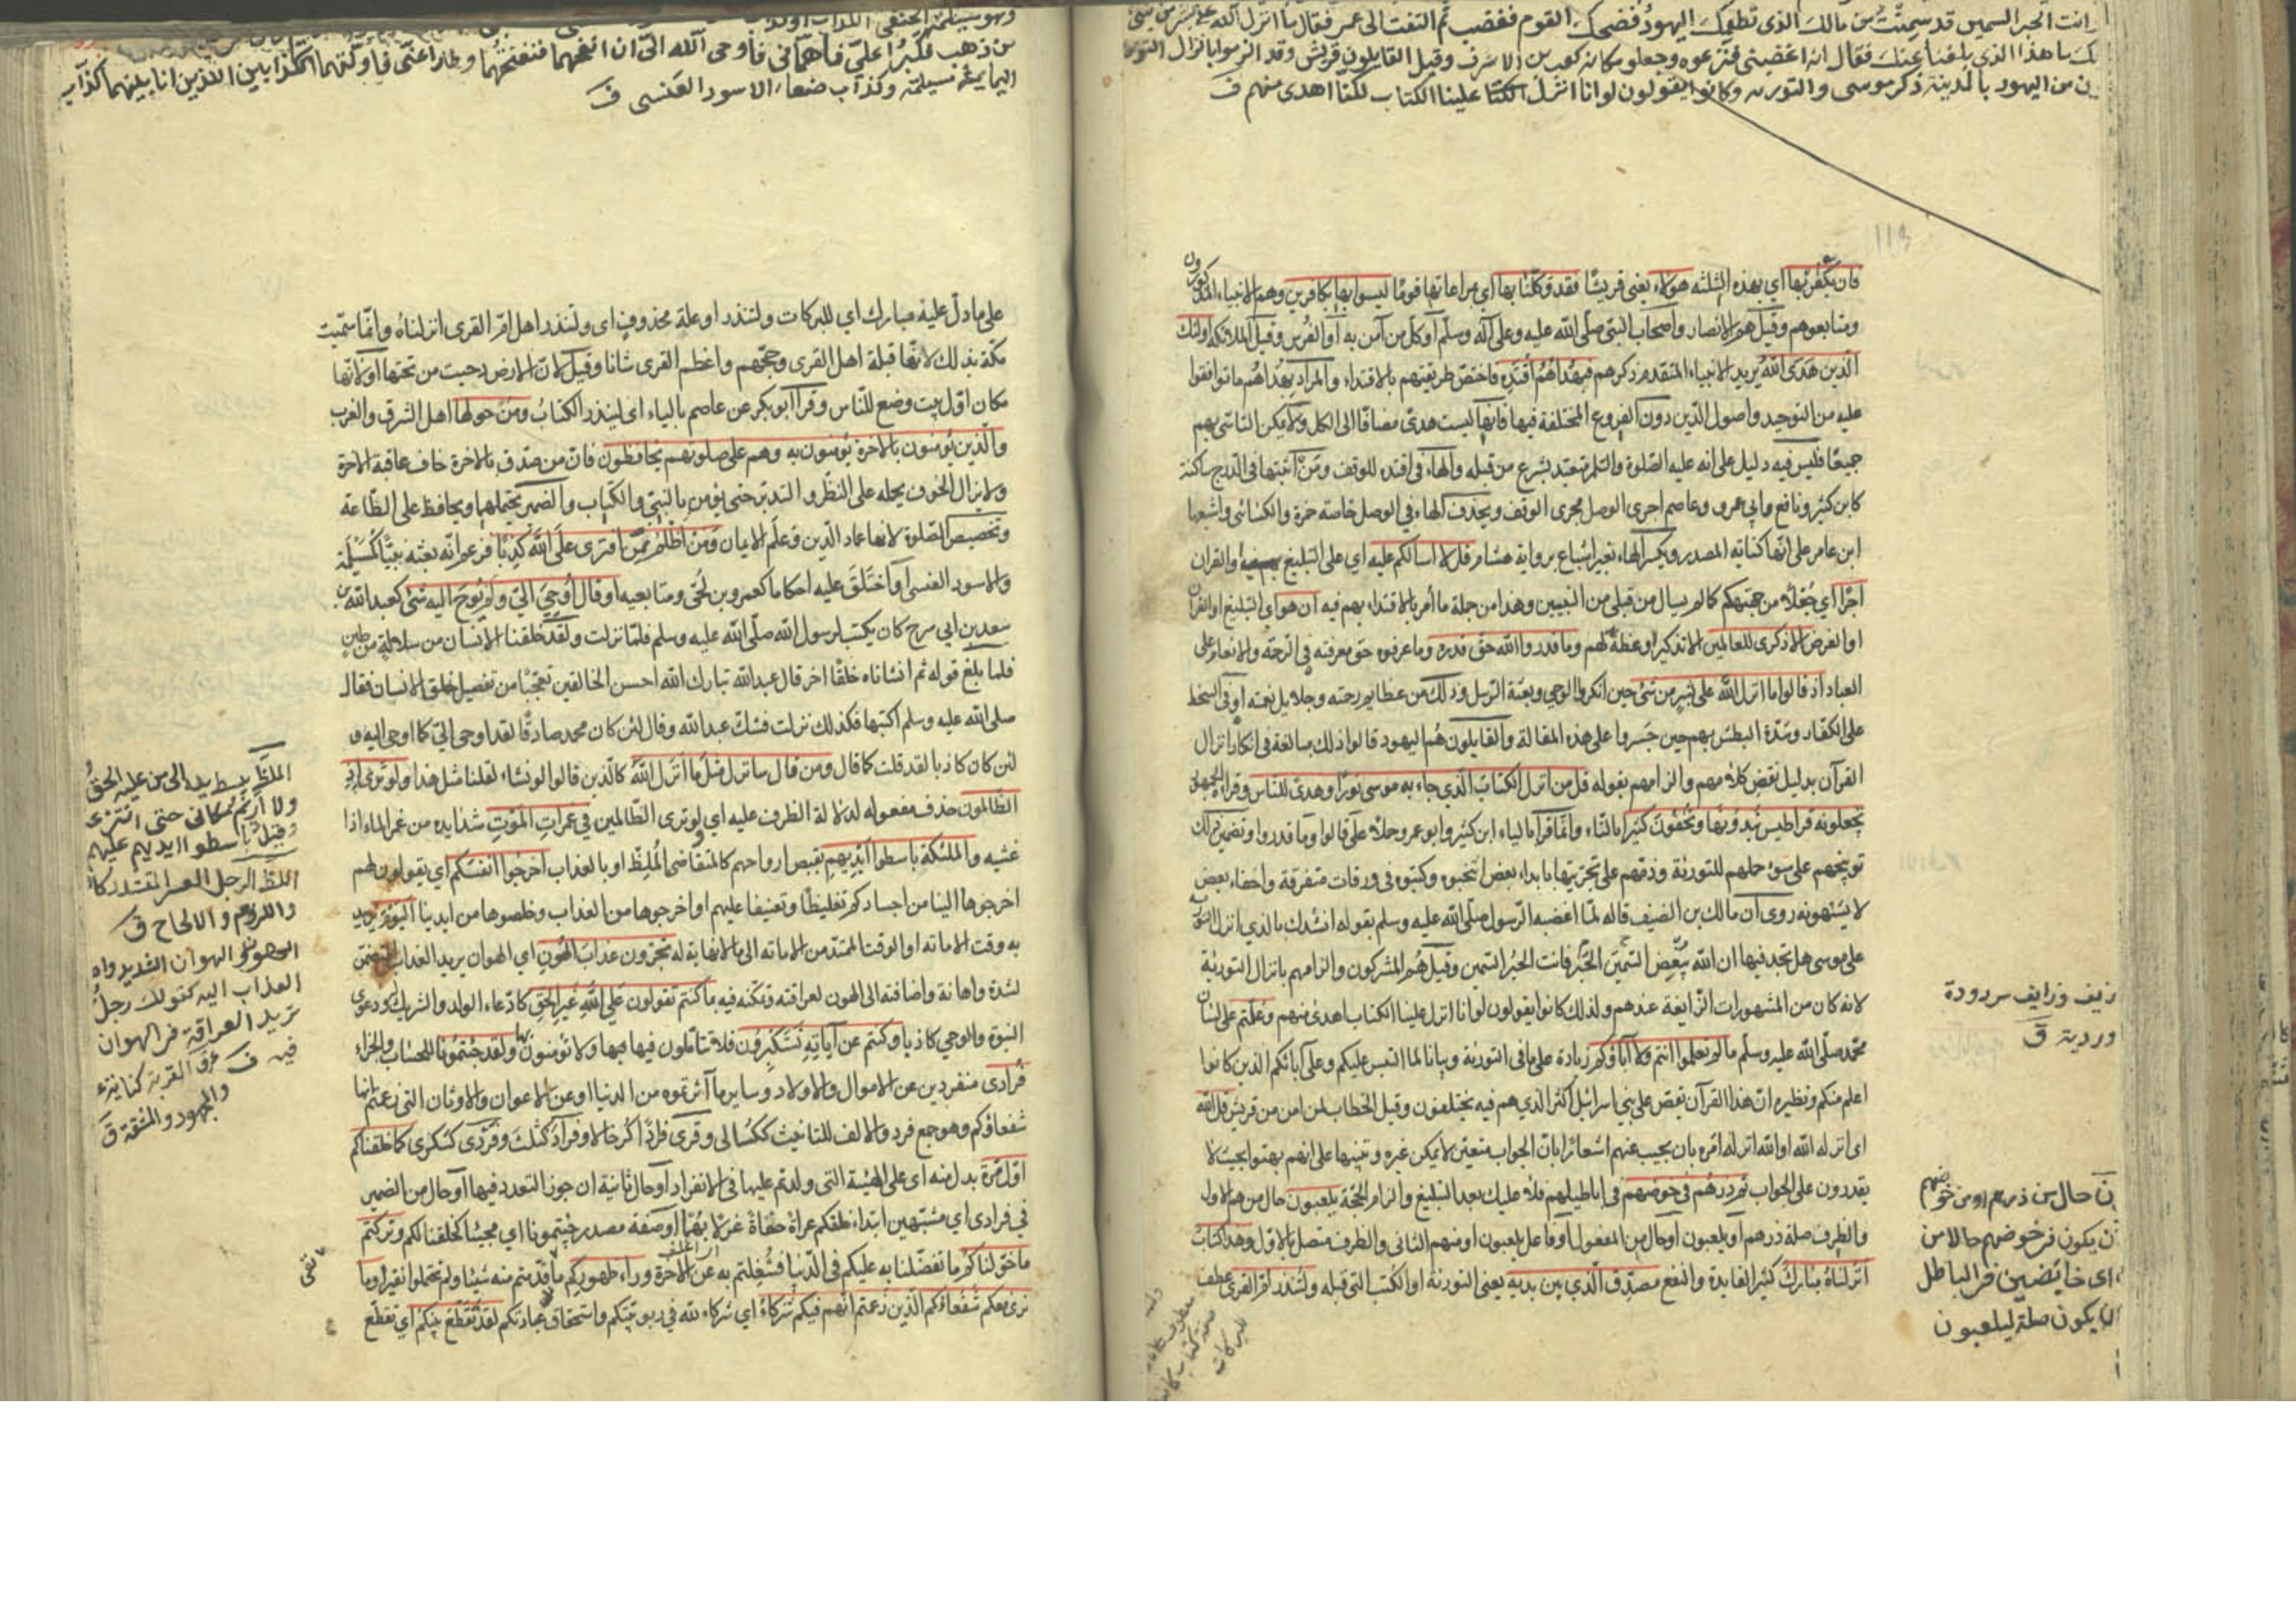 انت الحبر السمين قد سمنت من مالك الذى تطعمك اليهود فضحك القوم فغضب ثم التفت الى عمر فقال ما انزل الله على بشر من شئ
ما هذا الذى بلغنا عنك فقال انه اغضبنى فنزعوه وجعلوا مكانه كعب بن الاشرف وقيل القايلون قريش وقد الزموا بانزال التورية
من اليهود بالمدينة ذكر موسى والتورية وكانوا يقولون لو انا انزل علينا الكتاب لكنا اهدى منهم ف
فان يكفر بها اى بهذه الثلثة هؤلاء يعنى قريشا فقد وكلنا بها اى بمراعاتها قوما ليسوا بها بكافرين وهم الانبياء المذكورون
ومتابعوهم وقيل هم الانصار واصحاب النبى صلى الله عليه وعلى آله وسلم او كل من آمن به او الفرس وقيل الملائكة اولئك
الذين هدى الله يريد الانبياء المتقدم ذكرهم فبهداهم اقتده فاختص طريقتهم بالاقتداء والمراد بهداهم ما توافقوا
عليه من التوحيد واصول الدين دون الفروع المختلفة فيها فانها ليست هدى مضافا الى الكل ولا يمكن التاسى بهم
جميعا فليس فيه دليل على انه عليه الصلوة والسلم متعبد بشرع من قبله والهاء فى اقتده للوقف ومن اثبتها فى الدرج ساكنة
كابن كثير ونافع وابى عمرو وعاصم اجرى الوصل مجرى الوقف ويحذف الهاء فى الوصل خاصة حمزة والكسائى واشبعها
ابن عامر على انها كناية المصدر وبكسر الهاء بغير اشباع برواية هشام قل لا اسالكم عليه اى على التبليغ والقران
اجرا اى جعلا من جهتكم كما لم يسال من قبلى من النبيين وهذا من جملة ما أمر بالاقتداء بهم فيه ان هو اى التبليغ او القران
او الغرض الا ذكرى للعالمين الا تذكيرا وعظة لهم وما قدروا الله حق قدره وما عرفوه حق معرفته فى الرحمة والانعام على
العباد اذ قالوا ما انزل الله على بشر من شئ حين انكروا الوحى وبعثة الرسل وذلك من عظايم رحمته وجلايل نعمته او فى السخط
على الكفار وشدة البطش بهم حين جسروا على هذه المقالة والقايلون هم اليهود قالوا ذلك مبالغة فى انكار انزال
القرآن بدليل نقض كلامهم والزامهم بقوله قل من انزل الكتاب الذى جاء به موسى نورا وهدى للناس وقراءة الجمهور
تجعلونه قراطيس تبدونها وتخفون كثيرا بالتاء وانما قرأ بالياء ابن كثير وابو عمرو حملا على قالوا وما قدروا وتضمن ذلك
توبيخهم على سوء حملهم للتورية وذمهم على تجزيتها بابداء بعض انتخبوه وكتبوه فى ورقات متفرقة واخفاء بعض
لا يشتهونه روى ان مالك بن الضيف قاله لما اغضبه الرسول صلى الله عليه وسلم بقوله انشدك بالذى انزل التورية
على موسى هل تجد فيها ان الله يبغض السمين الحبر فانت الحبر السمين وقيل هم المشركون والزامهم بانزال التورية
لانه كان من المشهورات الزايعة عندهم ولذلك كانوا يقولون لو انا انزل علينا الكتاب لكنا اهدى منهم وعلمتم على لسان
محمد صلى الله عليه وسلم ما لم تعلموا انتم ولا آباؤكم زيادة على ما فى التورية وبيانا لما التبس عليكم وعلى آبائكم الذين كانوا
اعلم منكم ونظيره ان هذا القرآن يقص على بنى اسرائيل اكثر الذى هم فيه يختلفون وقيل الخطاب لمن امن من قريش قل الله
اى انزله الله او الله انزله امره بان يجيب عنهم اشعارا بان الجواب متعين لا يمكن غيره وتنبيها على انهم بهتوا بحيث لا
يقدرون على الجواب ثم ذرهم فى خوضهم فى اباطيلهم فلا عليك بعد التبليغ والزام الحجة يلعبون حال من هم الاول
والظرف صلة ذرهم او يلعبون او حال من المفعول او فاعل يلعبون او منهم الثانى والظرف متصل بالاول وهذا كتاب
انزلناه مبارك كثير الفايدة والنفع مصدق الذى بين يديه يعنى التورية او الكتب التى قبله ولتنذر ام القرى عطف
زيف وزايف مردودة
وردية ق
حال من ذرهم او من خوضهم
ان يكون فى خوضهم حالا من
اى خائضين فى الباطل
ان يكون صلة ليلعبون
من ذهب فكبرا على فاهمانى فاوحى الله الى ان انفخهما فنفختهما وطارا عنى فاولتهما الكذابين اللذين انا بينهما كذاب
اليمامة مسيلمة وكذاب صنعاء الاسود العنسى ف
على ما دل عليه مبارك اى للبركات ولتنذر او علة محذوف اى ولتنذر اهل ام القرى انزلناه وانما سميت
مكة بذلك لانها قبلة اهل القرى وحجهم واعظم القرى شانا وقيل لان الارض دحيت من تحتها او لانها
مكان اول بيت وضع للناس وقرأ ابو بكر عن عاصم بالياء اى لينذر الكتاب ومن حولها اهل الشرق والغرب
والذين يؤمنون بالاخرة يؤمنون به وهم على صلوتهم يحافظون فان من صدق بالاخرة خاف عاقبة الاخرة
ولا يزال الخوف يحمله على النظر والتدبر حتى يؤمن بالنبى والكتاب والضمير يحتملهما ويحافظ على الطاعة
وتخصيص الصلوة لانها عماد الدين وعلم الايمان ومن اظلم ممن افترى على الله كذبا فزعم انه بعثه نبيا كمسيلمة
والاسود العنسى او اختلق عليه احكاما كعمرو بن لحى ومتابعيه او قال اوحى الى ولم يوح اليه شئ كعبد الله بن
سعد بن ابى سرح كان يكتب لرسول الله صلى الله عليه وسلم فلما نزلت ولقد خلقنا الانسان من سلالة من طين
فلما بلغ قوله ثم انشاناه خلقا اخر قال عبد الله تبارك الله احسن الخالقين تعجبا من تفصيل خلق الانسان فقال
صلى الله عليه وسلم اكتبها فكذلك نزلت فشك عبد الله وقال لئن كان محمد صادقا لقد اوحى الى كما اوحى اليه و
لئن كان كاذبا لقد قلت كما قال ومن قال سانزل مثل ما انزل الله كالذين قالوا لو نشاء لقلنا مثل هذا ولو ترى اذ
الظالمون حذف مفعوله لدلالة الظرف عليه اى ولو ترى الظالمين فى غمرات الموت شدايده من غمر الماء اذا
غشيه والملئكة باسطوا ايديهم بقبض ارواحهم كالمتقاضى الملظ او بالعذاب اخرجوا انفسكم اى يقولون لهم
اخرجوها الينا من اجسادكم تغليظا وتعنيفا عليهم او اخرجوها من العذاب وخلصوها من ايدينا اليوم يريد
به وقت الاماتة او الوقت الممتد من الاماتة الى ما لا نهاية له تجزون عذاب الهون اى الهوان يريد العذاب المتضمن
لشدة واهانة واضافته الى الهون لعراقته وتمكنه فيه بما كنتم تقولون على الله غير الحق كادعاء الولد والشريك ودعوى
النبوة والوحى كاذبا وكنتم عن آياته تستكبرون فلا تتاملون فيها ولا تؤمنون بها ولقد جئتمونا للحساب والجزاء
فرادى منفردين عن الاموال والاولاد وساير ما آثرتموه من الدنيا او عن الاعوان والاوثان التى زعمتم انها
شفعاؤكم وهو جمع فرد والالف للتانيث ككسالى وقرى فرادا كرخال وفراد كثلث وفردى كسكرى كما خلقناكم
اول مرة بدل منه اى على الهيئة التى ولدتم عليها فى الانفراد او حال ثانية ان جوز التعدد فيها او حال من الضمير
فى فرادى اى مشبهين ابتداء خلقكم عراة حفاة غرلا بهما او صفة مصدر جئتمونا اى مجيئا كخلقنا لكم وتركتم
ما خولناكم ما تفضلنا به عليكم فى الدنيا فشغلتم به عن الاخرة وراء ظهوركم ما قدمتم منه شيئا ولم تحتملوا نقيرا وما
نرى معكم شفعاءكم الذين زعمتم انهم فيكم شركاء اى شركاء لله فى ربوبيتكم واستحقاق عبادتكم لقد تقطع بينكم اى تقطع
وقيل باسطوا ايديهم عليهم
واللزوم والالحاح ق
العذاب اليه كقولك رجل
تريد العراقة فى الهوان
والجهود والمشقة ق